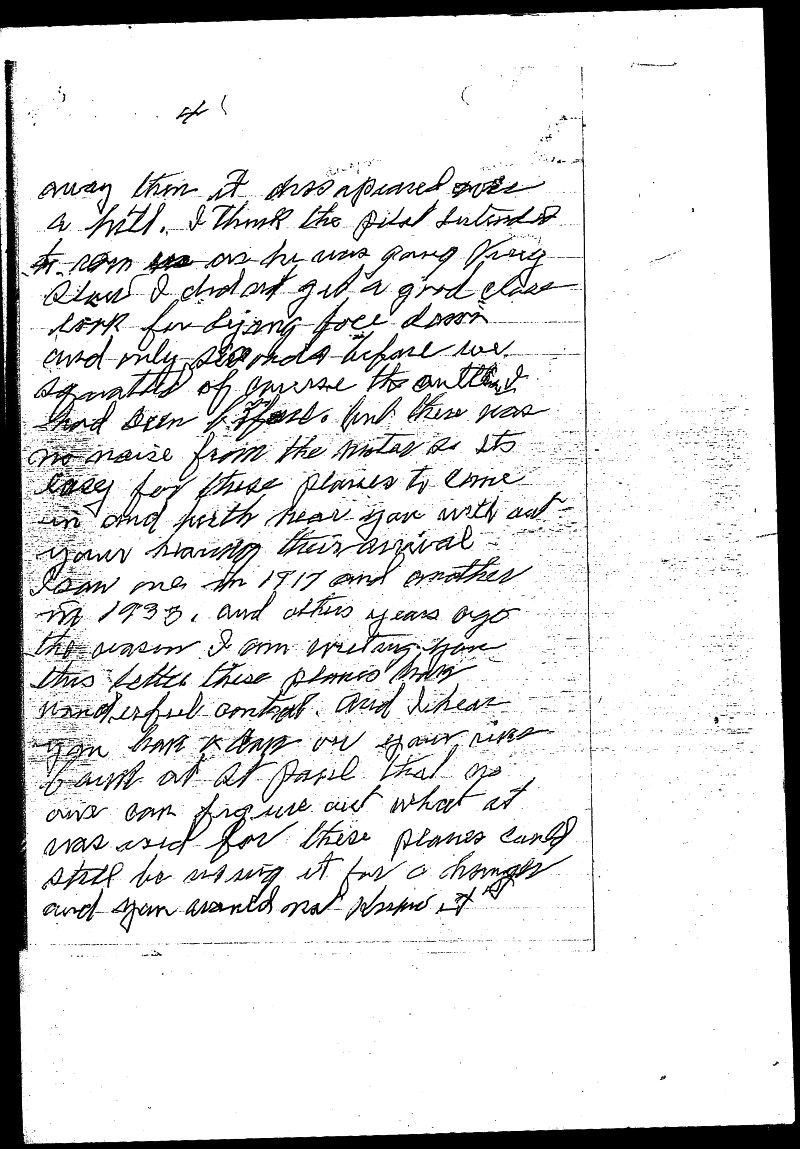 4
away then it dissapeared over
a hill. I think the pilot intended
to us as he was going very
slow I did not get a good close
look for lying face down
and only seconds before we
squatted of course the outlaw I
had seen before. but there was
no noise from the motor so its
easy for these planes to come
in and near you with out
your hearing their arrival
I saw one in 1917 and another
in 1933. and others years ago
the reason I am writing you
this letter these planes have
wonderful control. And I hear
you have a on your river
bank at St Paul that no
one can figure out what it
was used for these planes could
still be using it for a hanger
and you would not know it